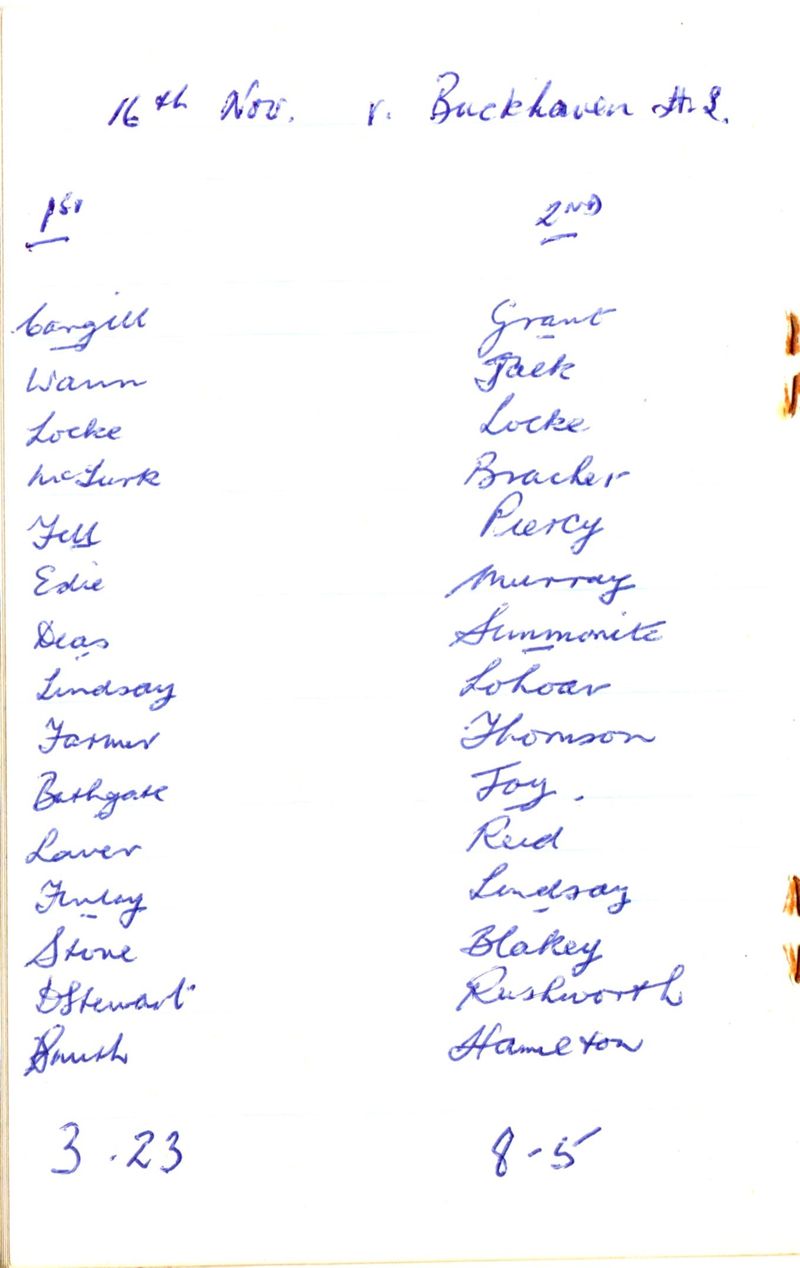 16th Nov. v. Buckhaven H.S.
1ST 2ND
Cargill Grant
Wann Jack
Locke Locke
McLurk Bracher
Fell Piercy
Edie Murray
Deas Summonite
Lindsay Lohoar
Farmer Thomson
Bathgate Foy.
Laver Reid
Finlay Lindsay
Stone Blakey
D Stewart Rushworth
Smith Hamilton
3 - 23 8 - 5